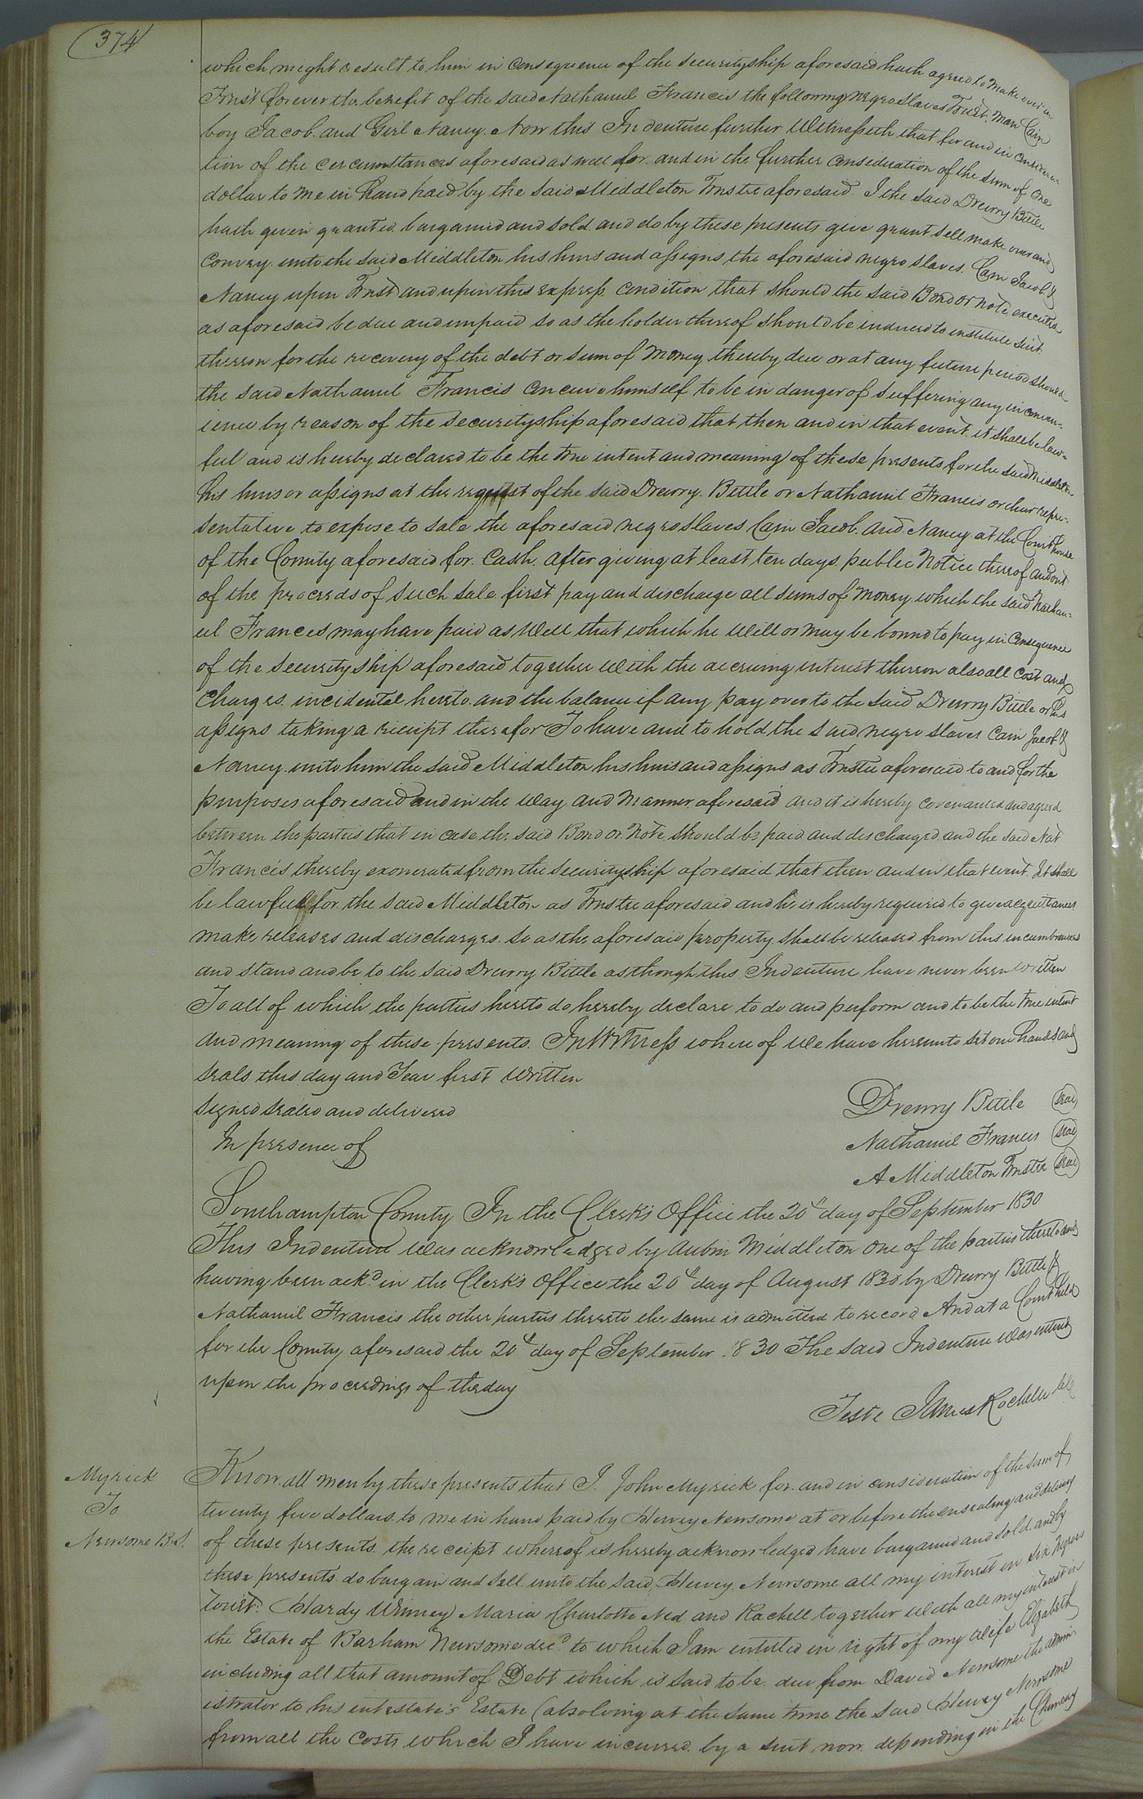 374
which might result to him in consequence of the securityship aforesaid hath agreed to make over in
Trust forever the benefit of the said Nathaniel Francis the following negro slaves Towit. Man Cain
boy Jacob and Girl Nancy. Now this Indenture further Witnesseth that for and in considera-
tion of the circumstances aforesaid as well for and in the further consideration of the sum of one
dollar to me in hand paid by the said Middleton Trustee aforesaid I the said Drewry Bittle
hath given granted bargained and sold and do by these presents give grant sell make over and
convey unto the said Middleton his heirs and assigns the aforesaid negro slaves. Cain Jacob &
Nancy upon Trust and upon this express condition that should the said Bond or note executed
as aforesaid be due and unpaid so as the holder thereof should be induced to institute suit
thereon for the recovery of the debt or sum of money thereby due or at any future period should
the said Nathaniel Francis conceive himself to be in danger of suffering any inconven-
ience by reason of the securityship aforesaid that then and in that event it shall be law-
ful and is hereby declared to be the true intent and meaning of these presents for the said Middleton
his heirs or assigns at the request of the said Drewry Bittle or Nathaniel Francis or their repre-
sentative to expose to sale the aforesaid negro slaves Cain Jacob and Nancy at the Court house
of the County aforesaid for Cash after giving at least ten days public Notice thereof and out
of the proceeds of such sale first pay and discharge all sums of money which the said Nathan-
iel Francis may have paid as well that which he will or may be bound to pay in consequence
of the securityship aforesaid together with the accruing interest thereon also all cost and
charges incidental hereto and the balance if any pay over to the said Drewry Bittle or his
assigns taking a receipt therefor To have and to hold the said negro slaves Cain Jacob &
Nancy unto him the said Middleton his heirs and assigns as Trustee aforesaid to and for the
purposes aforesaid and in the way and manner aforesaid and it is hereby covenanted and agreed
between the parties that in case the said Bond or Note should be paid and discharged and the said Nat
Francis thereby exonerated from the securityship aforesaid that then and in that event It shall
be lawful for the said Middleton as Trustee aforesaid and he is hereby required to give acquittances
make releases and discharges so as the aforesaid property shall be released from this incumbrances
and stand and be to the said Drewry Bittle as though this Indenture have never been written
To all of which the parties hereto do hereby declare to do and perform and to be the true intent
and meaning of these presents. In Witness whereof We have hereunto set our hands and
seals this day and Year first written
Signed sealed and delivered
In presence of
Drewry Bittle seal
Nathaniel Francis seal
A Middleton Trustee seal
Southampton County In the Clerk's Office the 20th day of September 1830
This Indenture was acknowledged by Aubin Middleton one of the parties thereto and
having been ackd in the Clerk's Office the 20th day of August 1830 by Drewry Bittle &
Nathaniel Francis the other parties thereto the same is admitted to record And at a Court held
for the County aforesaid the 20th day of September 1830 The said Indenture was entered
upon the proceedings of the day
Teste James Rochelle Clk
Myrick
To
Newsome B.S.
Know all men by these presents that I John Myrick for and in consideration of the sum of
twenty five dollars to me in hand paid by Hervey Newsome at or before the ensealing and delivery
of these presents. the receipt whereof is hereby acknowledged have bargained and sold and by
these presents do bargain and sell unto the said Hervey Newsome all my interest in six negroes
towit. Hardy Winney Maria Charlotte Ned and Rachell together with all my interest in
the Estate of Barham Newsome decd to which I am entitled in right of my wife Elizabeth
including all that amount of Debt which is said to be due from David Newsome the admin-
istrator to his intestate's Estate (absolving at the same time the said Hervey Newsome
from all the costs which I have incurred by a suit now depending in the Chancery